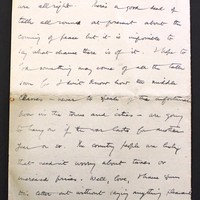 are all right. There's a good deal of
talk all round at present about the
coming of peace but it is impossible to
say what chance there is of it. I hope to
God something may come of all the talk
soon for I don't know how the middle
classes - never to speak of the unfortunate
poor in the towns and cities - are going
to carry on if the war lasts for another
year or so. The country people are lucky
that needn't worry about taxes or
increased prices. Well, love, I have
this letter out without saying anything